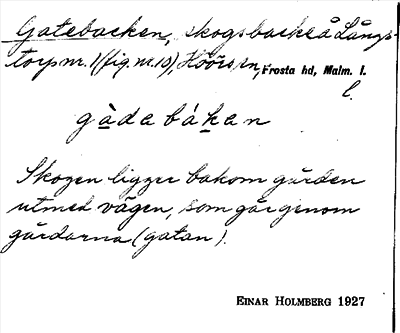 Gatebacken, skogsbacke å Långs-
torp nr. 1 (fig. nr. 10), Höörs sn, Frosta hd, Malm. l.
l.
gàdabákan
Skogen ligger bakom gården
utmed vägen, som går genom
gårdarna (gatan).
EINAR HOLMBERG 1927